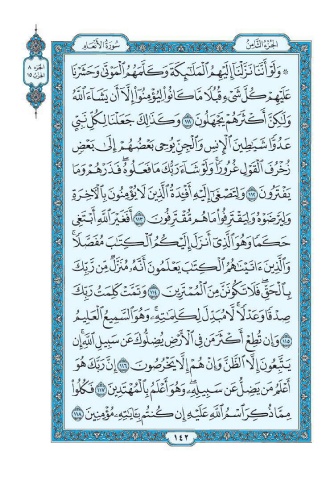 الجزء الثامن
سورة الأنعام
الجزء ٨
الحزب ١٥
۞ وَلَوْ أَنَّنَا نَزَّلْنَا إِلَيْهِمُ الْمَلَائِكَةَ وَكَلَّمَهُمُ الْمَوْتَىٰ وَحَشَرْنَا
عَلَيْهِمْ كُلَّ شَيْءٍ قُبُلًا مَّا كَانُوا لِيُؤْمِنُوا إِلَّا أَن يَشَاءَ اللَّهُ
وَلَٰكِنَّ أَكْثَرَهُمْ يَجْهَلُونَ ١١١ وَكَذَٰلِكَ جَعَلْنَا لِكُلِّ نَبِيٍّ
عَدُوًّا شَيَاطِينَ الْإِنسِ وَالْجِنِّ يُوحِي بَعْضُهُمْ إِلَىٰ بَعْضٍ
زُخْرُفَ الْقَوْلِ غُرُورًا ۚ وَلَوْ شَاءَ رَبُّكَ مَا فَعَلُوهُ ۖ فَذَرْهُمْ وَمَا
يَفْتَرُونَ ١١٢ وَلِتَصْغَىٰ إِلَيْهِ أَفْئِدَةُ الَّذِينَ لَا يُؤْمِنُونَ بِالْآخِرَةِ
وَلِيَرْضَوْهُ وَلِيَقْتَرِفُوا مَا هُم مُّقْتَرِفُونَ ١١٣ أَفَغَيْرَ اللَّهِ أَبْتَغِي
حَكَمًا وَهُوَ الَّذِي أَنزَلَ إِلَيْكُمُ الْكِتَابَ مُفَصَّلًا ۚ
وَالَّذِينَ آتَيْنَاهُمُ الْكِتَابَ يَعْلَمُونَ أَنَّهُ مُنَزَّلٌ مِّن رَّبِّكَ
بِالْحَقِّ ۖ فَلَا تَكُونَنَّ مِنَ الْمُمْتَرِينَ ١١٤ وَتَمَّتْ كَلِمَتُ رَبِّكَ
صِدْقًا وَعَدْلًا ۚ لَّا مُبَدِّلَ لِكَلِمَاتِهِ ۚ وَهُوَ السَّمِيعُ الْعَلِيمُ
١١٥ وَإِن تُطِعْ أَكْثَرَ مَن فِي الْأَرْضِ يُضِلُّوكَ عَن سَبِيلِ اللَّهِ ۚ إِن
يَتَّبِعُونَ إِلَّا الظَّنَّ وَإِنْ هُمْ إِلَّا يَخْرُصُونَ ١١٦ إِنَّ رَبَّكَ هُوَ
أَعْلَمُ مَن يَضِلُّ عَن سَبِيلِهِ ۖ وَهُوَ أَعْلَمُ بِالْمُهْتَدِينَ ١١٧ فَكُلُوا
مِمَّا ذُكِرَ اسْمُ اللَّهِ عَلَيْهِ إِن كُنتُم بِآيَاتِهِ مُؤْمِنِينَ ١١٨
١٤٢